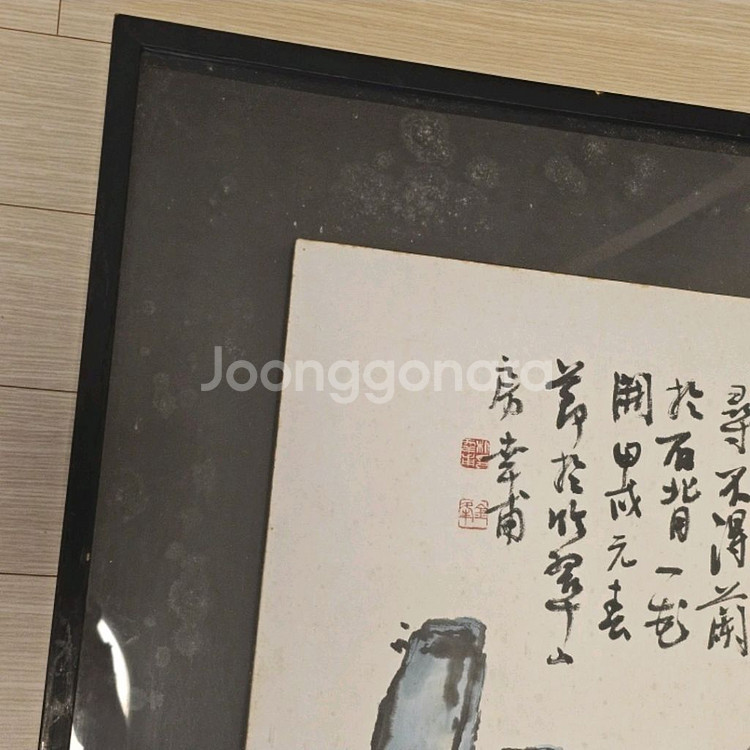 尋不得蘭
於石背一花
開甲戌元春
節於竹翠山
房幸甫
Joonggonara